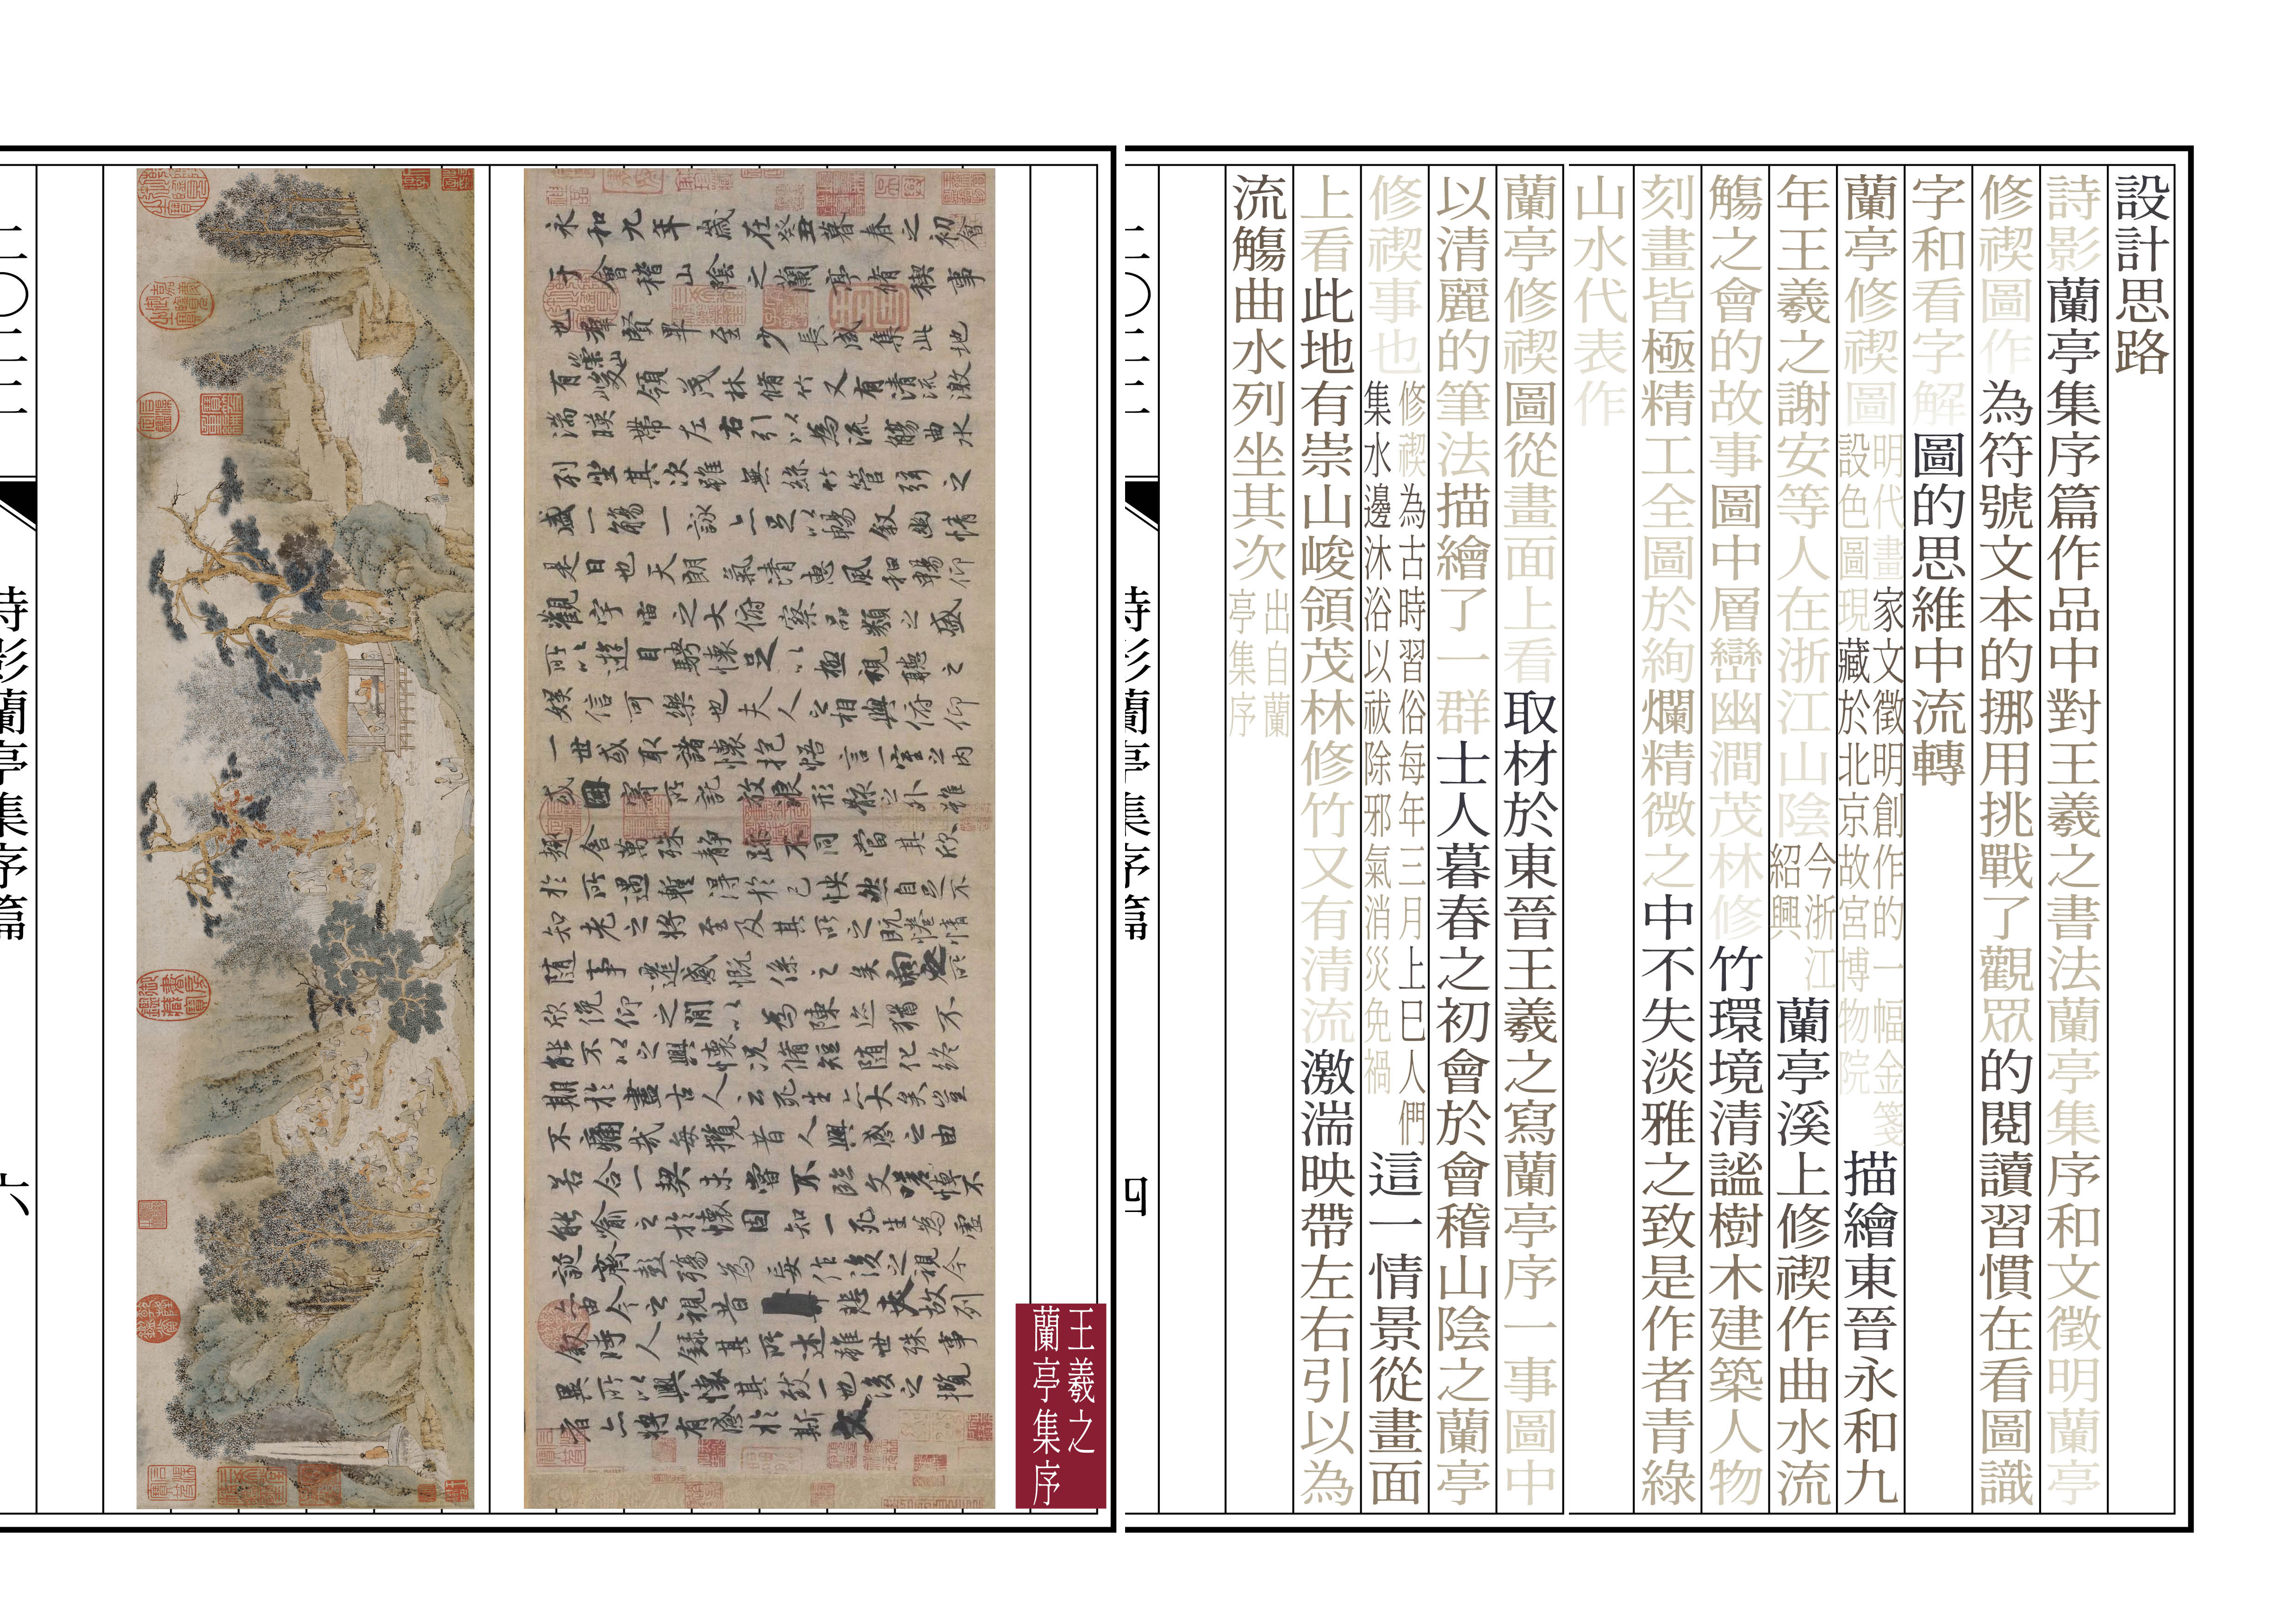 設計思路
詩影蘭亭集序篇作品中對王羲之書法蘭亭集序和文徵明蘭亭
修禊圖作為符號文本的挪用挑戰了觀眾的閱讀習慣在看圖識
字和看字解圖的思維中流轉
蘭亭修禊圖
明代畫家文徵明創作的一幅金箋
設色圖現藏於北京故宮博物院
描繪東晉永和九
年王羲之謝安等人在浙江山陰
今浙江
紹興
蘭亭溪上修禊作曲水流
觴之會的故事圖中層巒幽澗茂林修竹環境清謐樹木建築人物
刻畫皆極精工全圖於絢爛精微之中不失淡雅之致是作者青綠
山水代表作
蘭亭修禊圖從畫面上看取材於東晉王羲之寫蘭亭序一事圖中
以清麗的筆法描繪了一群士人暮春之初會於會稽山陰之蘭亭
修禊事也
修禊為古時習俗每年三月上巳人們
集水邊沐浴以祓除邪氣消災免禍
這一情景從畫面
上看此地有崇山峻領茂林修竹又有清流激湍映帶左右引以為
流觴曲水列坐其次
出自蘭
亭集序
詩影蘭亭集序篇
四
王羲之
蘭亭集序
永和九年歲在癸丑暮春之初會
于會稽山陰之蘭亭脩稧事
也羣賢畢至少長咸集此地
有崇山峻領茂林脩竹又有清流激
湍暎帶左右引以為流觴曲水
列坐其次雖無絲竹管弦之
盛一觴一詠亦足以暢敘幽情
是日也天朗氣清惠風和暢仰
觀宇宙之大俯察品類之盛
所以遊目騁懷足以極視聽之
娛信可樂也夫人之相與俯仰
一世或取諸懷抱悟言一室之內
或因寄所託放浪形骸之外雖
趣舍萬殊靜躁不同當其欣
於所遇暫得於己怏然自足不
知老之將至及其所之既惓情
隨事遷感慨係之矣向之所
欣俛仰之閒以為陳迹猶不
能不以之興懷況脩短隨化終
期於盡古人云死生亦大矣豈
不痛哉每攬昔人興感之由
若合一契未嘗不臨文嗟悼不
能喻之於懷固知一死生為虛
誕齊彭殤為妄作後之視今
亦由今之視昔悲夫故列
敘時人錄其所述雖世殊事
異所以興懷其致一也後之攬
者亦將有感於斯文
詩影蘭亭集序篇
六